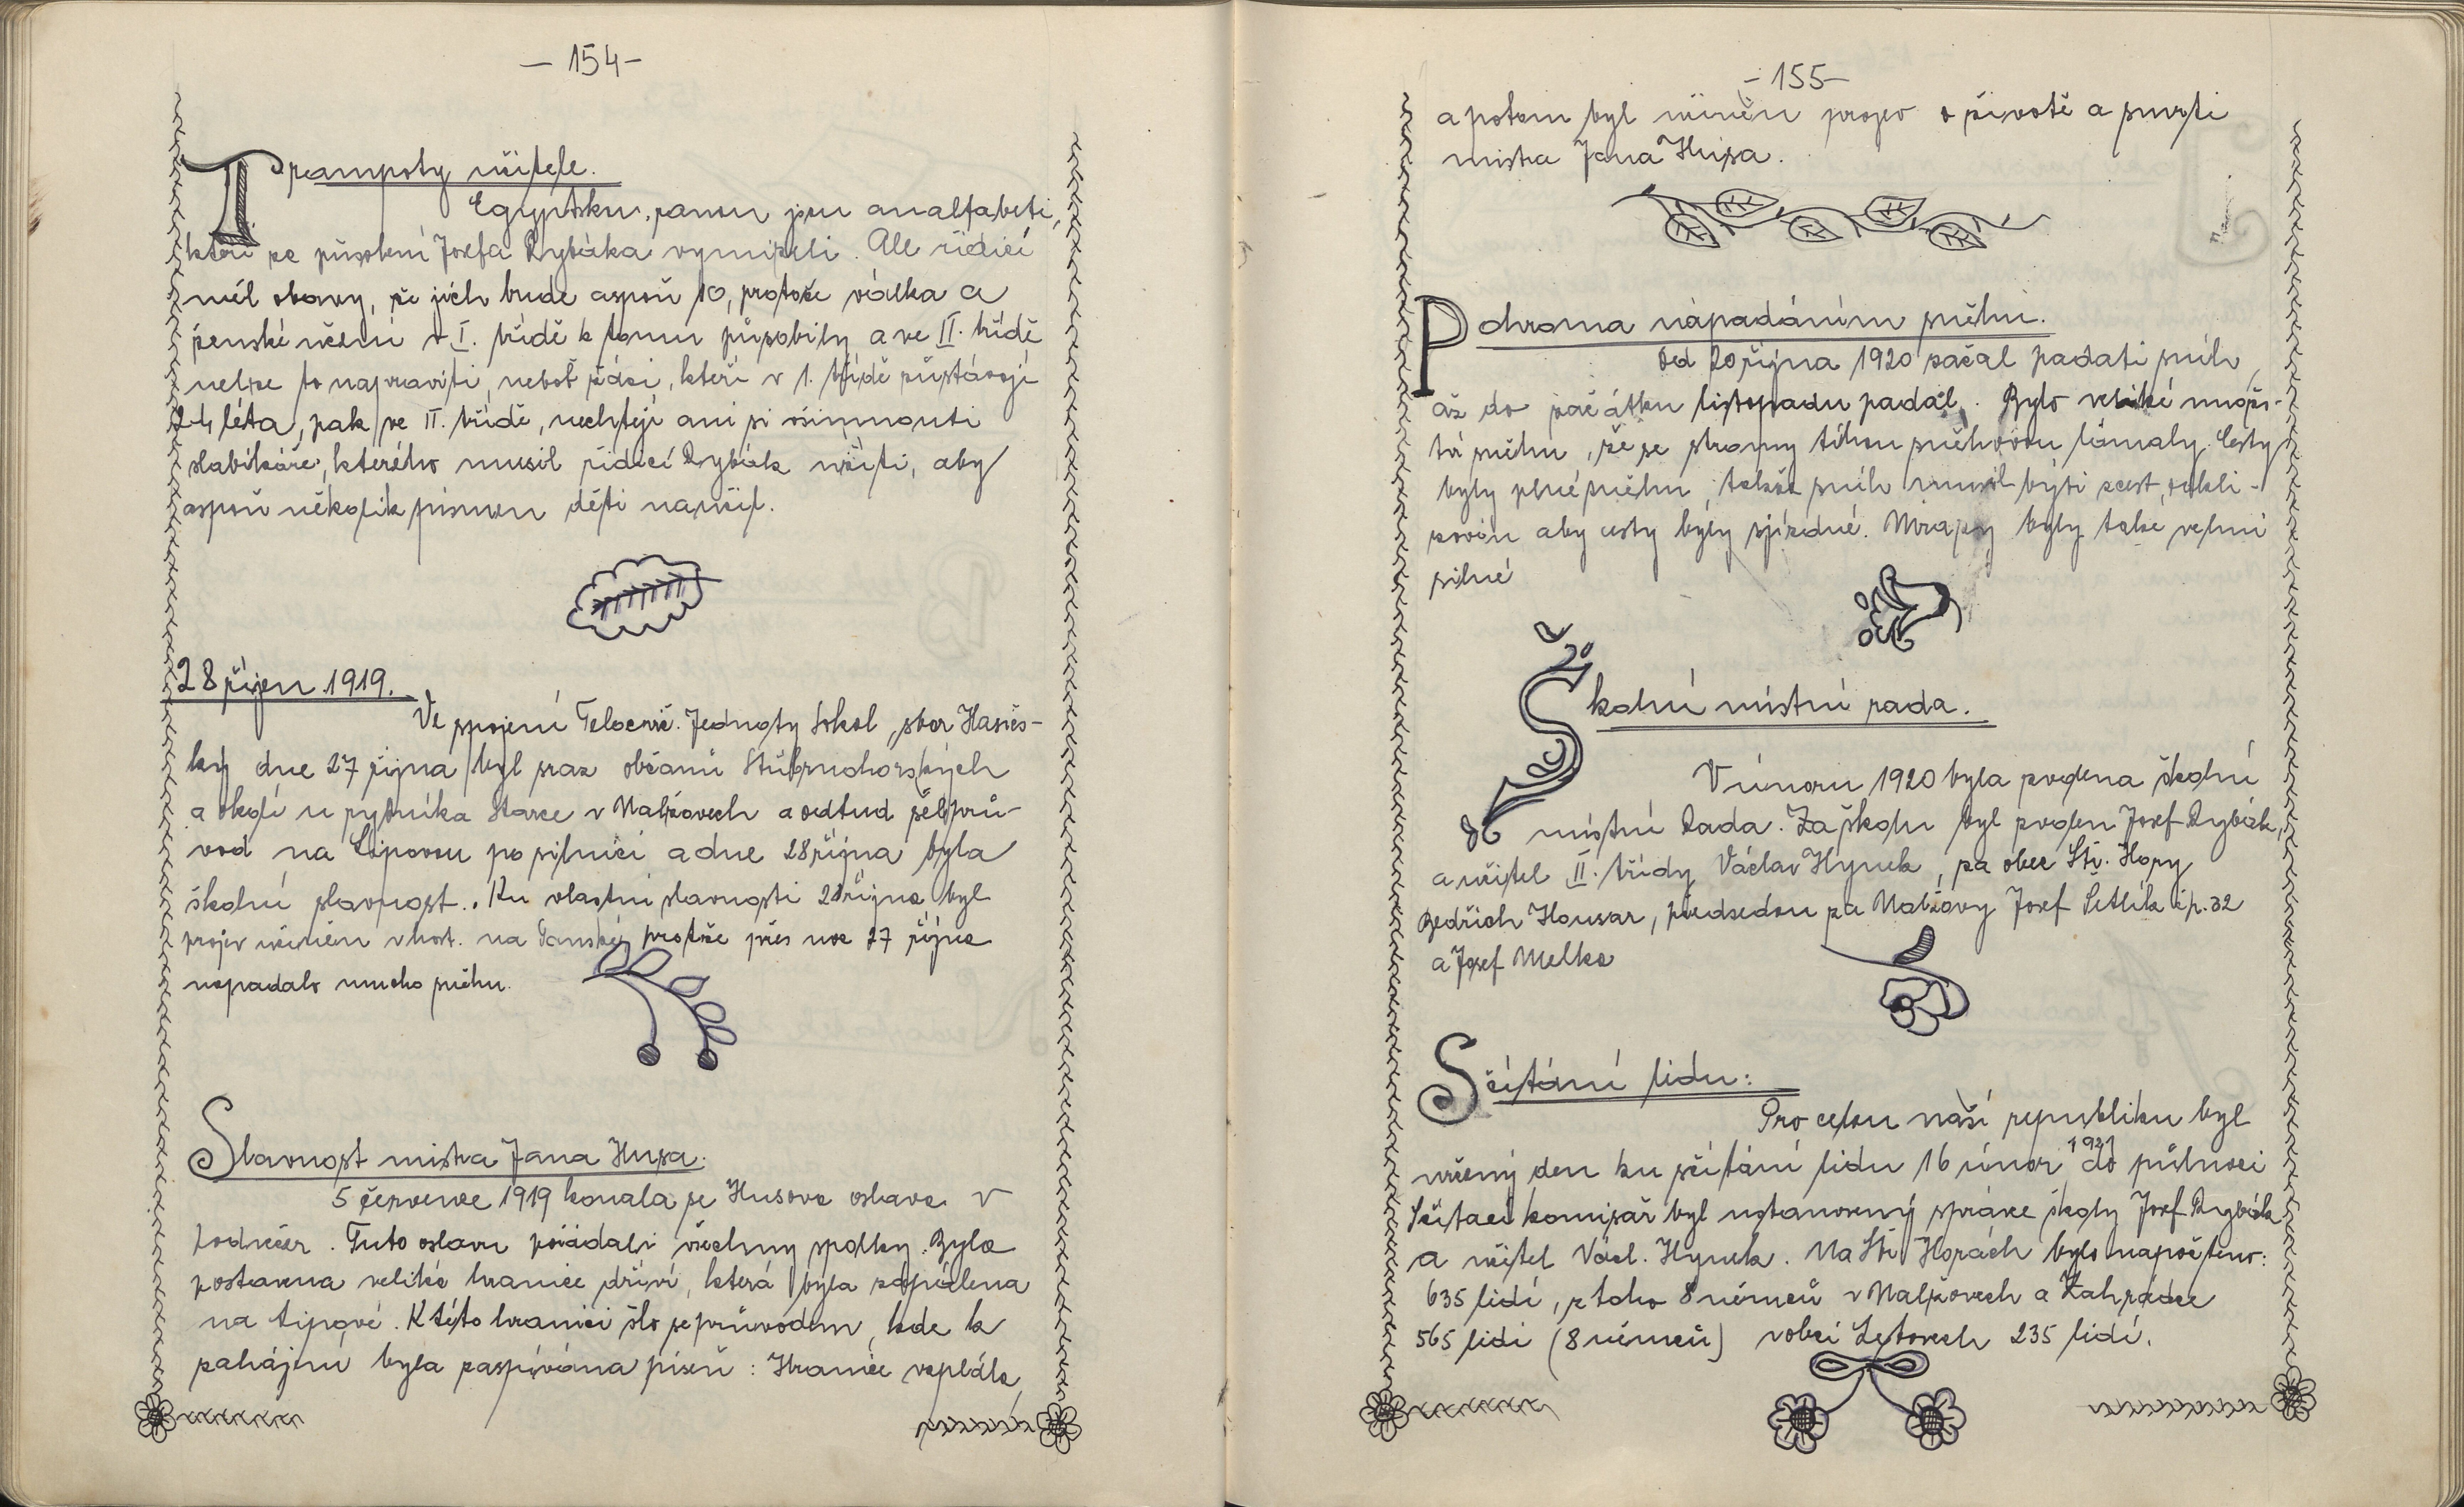 — 154 —
Trampoty učitele.
Egyptskou ranou jsou analfabeti,
kteří za působení Josefa Rybáka vymizeli. Ale řídící
měl obavy, že jich bude aspoň 10, protože válka a
ženské učení v I. třídě k tomu působily a ve II. třídě
nelze to napraviti, neboť žáci, kteří v 1. třídě zůstávají
léta, pak ve II. třídě, nechtějí ani si všimnouti
slabikáře, kterého musil řídící Rybák učiti, aby
aspoň několik písmen děti naučil.
28 říjen 1919.
Ve spojení Tělocvič. Jednoty Sokol, sbor Hasičs-
ký dne 27 října byl sraz občanů Stříbrnohorských
a okolí u rybníka Starce v Nalžovech a odtud šel prů-
vod na Lipovou po silnici a dne 28 října byla
školní slavnost. Ku vlastní slavnosti 28 října byl
projev učiněn v host. na Panské, protože přes noc 27 října
napadalo mnoho sněhu.
Slavnost mistra Jana Husa.
5 července 1919 konala se Husova oslava v
podvečer. Tuto oslavu pořádali všechny spolky. Byla
postavena veliká hranice dříví, která byla zapálena
na Lipové. K této hranici šlo se průvodem, kde k
zahájení byla zaspívána píseň: Hranice vzplála,
- 155 -
a potom byl učiněn projev o životě a smrti
mistra Jana Husa.
Pohroma napadáním sněhu.
Od 20 října 1920 začal padati sníh,
až do začátku listopadu padal. Bylo veliké množs-
tví sněhu, že se stromy tíhou sněhovou lámaly. Cesty
byly plné sněhu, takže sníh musil býti z cest odkli-
zován aby cesty byly sjízdné. Mrazy byly také velmi
silné
Školní místní rada.
V únoru 1920 byla zvolena školní
místní Rada. Za školu byl zvolen Josef Rybák,
a učitel II. třídy Václav Hynek, za obec Stř. Hory
Bedřich Housar, předsedou za Nalžovy Josef Šetlík čp. 32
a Josef Melka
Sčítání lidu:
Pro celou naší republiku byl
určený den ku sčítání lidu 16 únor 1921 do půlnoci
Sčítací komisař byl ustanovený správce školy Josef Rybák
a učitel Václ. Hynek. Na Stř. Horách bylo napočteno:
635 lidí, z toho 8 němců v Nalžovech a Zahrádce
565 lidí (8 němců) v obci Letovech 235 lidí.